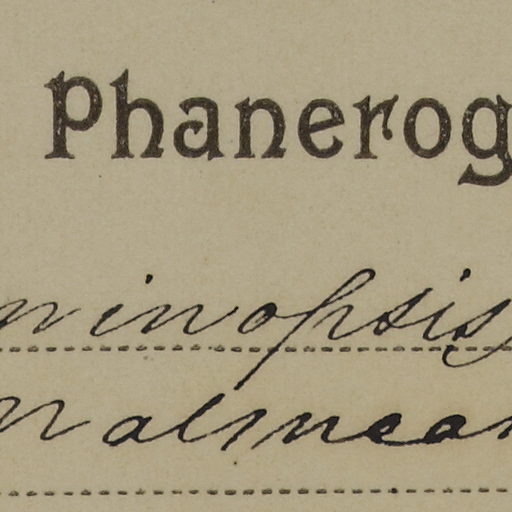 Phanerog
ninopsis
n alsinean